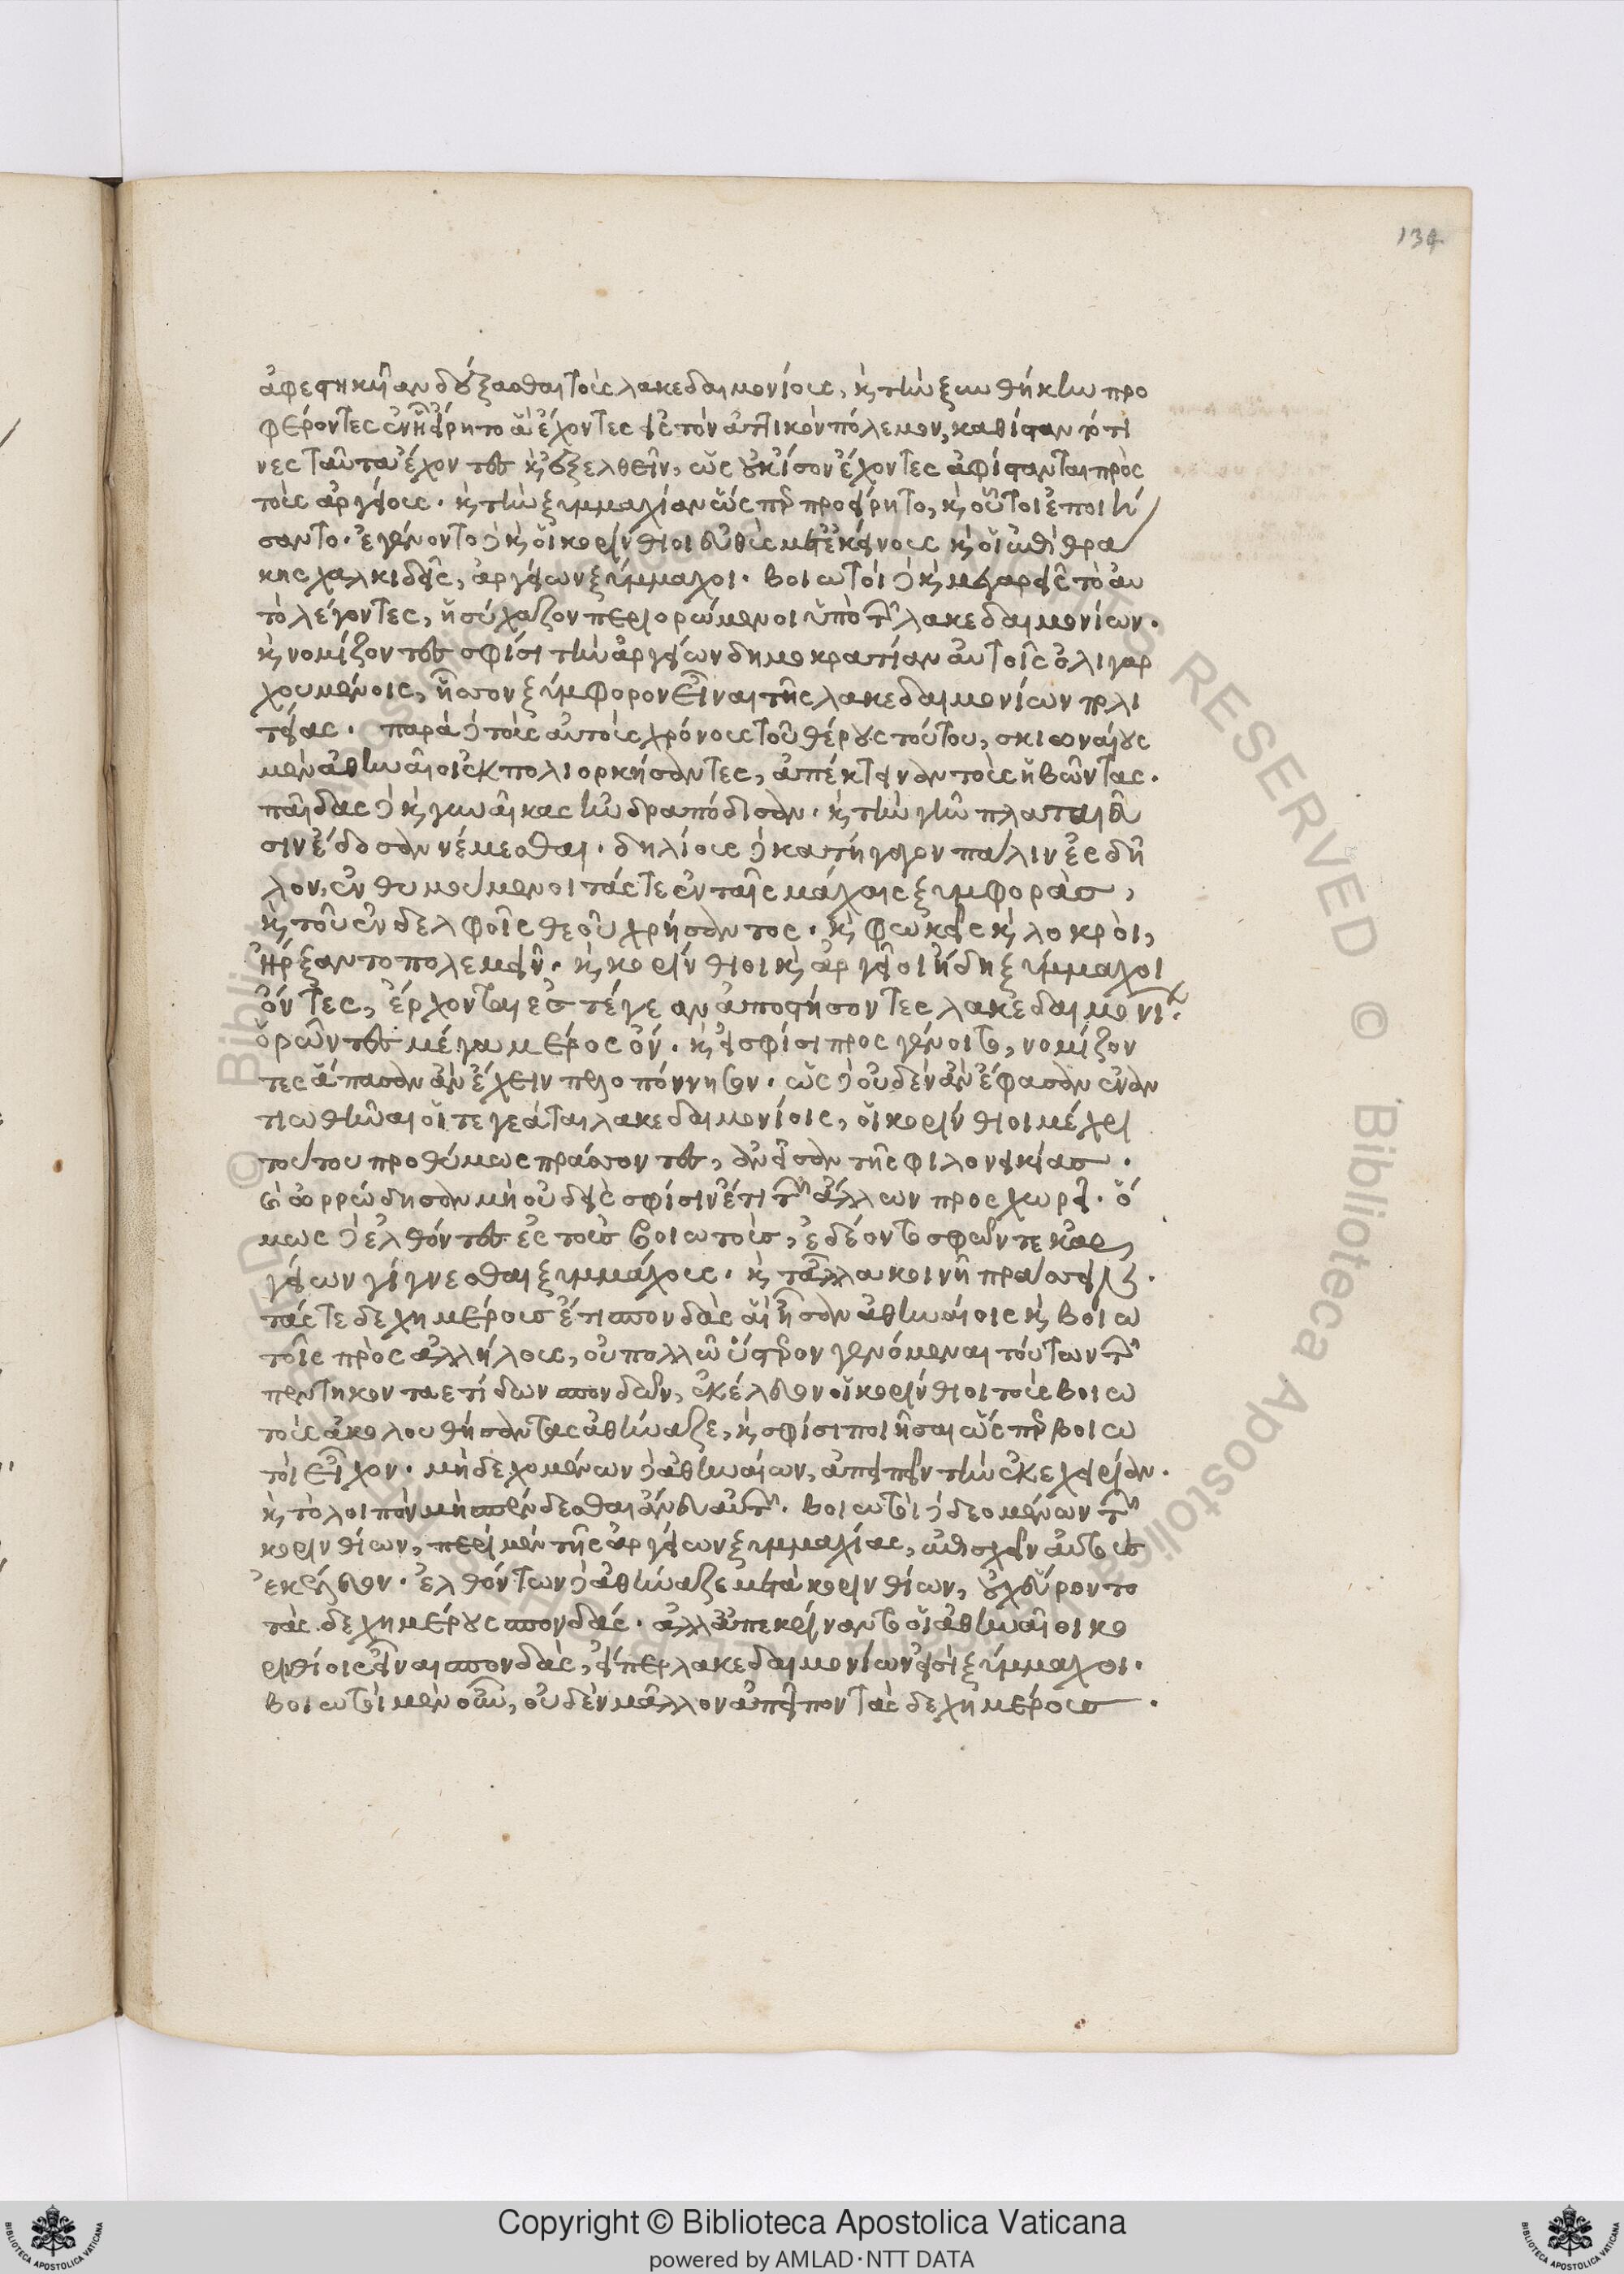 134
ἀφεστηκυῖαν δέξασθαι τοὺς λακεδαιμονίους, καὶ τὴν ξυνθήκην προ
φέροντες ἐν ἧ εἴρητο ἃ ἔχοντες ἐς τὸν ἀττικὸν πόλεμον, καθίσταντό τι
νες ταῦτα ἔχοντας καὶ ἐξελθεῖν, ὡς οὐκ ἴσον ἔχοντες ἀφίστανται πρὸς
τοὺς ἀργείους. καὶ τὴν ξυμμαχίαν ὥς περ προείρητο, καὶ οὗτοι ἐποιή
σαντο. ἐγένοντο δὲ καὶ οἱ κορίνθιοι εὐθὺς μετ' ἐκείνους καὶ οἱ ἐπὶ θρά
κης χαλκιδεῖς, ἀργείων ξύμμαχοι. βοιωτοὶ δὲ καὶ μεγαρεῖς τὸ αὐ
τὸ λέγοντες, ἡσύχαζον περιορώμενοι ὑπὸ τῶν λακεδαιμονίων.
καὶ νομίζοντες σφίσι τὴν ἀργείων δημοκρατίαν αὐτοῖς ὀλιγαρ
χουμένοις, ἧσσον ξύμφορον εἶναι τῆς λακεδαιμονίων πολι
τείας. παρὰ δὲ τοὺς αὐτοὺς χρόνους τοῦ θέρους τούτου, σκιωναίους
μὲν ἀθηναῖοι ἐκπολιορκήσαντες, ἀπέκτειναν τοὺς ἡβῶντας.
παῖδας δὲ καὶ γυναῖκας ἠνδραπόδισαν. καὶ τὴν γῆν πλαταιεῦ
σιν ἔδοσαν νέμεσθαι. δηλίους δὲ κατήγαγον πάλιν ἐς δῆ
λον, ἐνθυμούμενοι τάς τε ἐν ταῖς μάχαις ξυμφορὰς,
καὶ τοῦ ἐν δελφοῖς θεοῦ χρήσαντος. καὶ φωκεῖς καὶ λοκροὶ,
ἤρξαντο πολεμεῖν. καὶ κορίνθιοι καὶ ἀργεῖοι ἤδη ξύμμαχοι
ὄντες, ἔρχονται ἐς τέγεαν ἀποστήσοντες λακεδαιμονίων.
ὁρῶντες μέγα μέρος ὄν. καὶ εἰ σφίσι προσγένοιτο, νομίζον
τες ἅπασαν ἂν ἔχειν πελοπόννησον. ὡς δὲ οὐδὲν ἂν ἔφασαν ἐναν
τιωθῆναι οἱ τεγεάται λακεδαιμονίοις, οἱ κορίνθιοι μέχρι
τούτου προθύμως πράσσοντες, ἀνεῖσαν τῆς φιλονεικίας.
καὶ ὀρρώδησαν μὴ οὐδεὶς σφίσιν ἔτι τῶν ἄλλων προσχωρῆ. ὅ
μως δὲ ἐλθόντες ἐς τοὺς βοιωτοὺς, ἐδέοντο σφῶν τε καὶ ἀρ
γείων γίγνεσθαι ξυμμάχους. καὶ τἄλλα κοινῇ πράσσειν.
τάς τε δεχημέρους ἐπισπονδὰς αἳ ἦσαν ἀθηναίοις καὶ βοιω
τοῖς πρὸς ἀλλήλους, οὐ πολλῶ ὕστερον γενόμεναι τούτων τῶν
πεντηκονταετίδων σπονδῶν, ἐκέλευον οἱ κορίνθιοι τοὺς βοιω
τοὺς ἀκολουθήσαντας ἀθήναζε, καὶ σφίσι ποιῆσαι ὥς περ βοιω
τοὶ εἶχον. μὴ δεχομένων δὲ ἀθηναίων, ἀπειπεῖν τὴν ἐκεχειρίαν.
καὶ τὸ λοιπὸν μὴ σπένδεσθαι ἄνευ αὐτῶν. βοιωτοὶ δὲ δεομένων τῶν
κορινθίων, περὶ μὲν τῆς ἀργείων ξυμμαχίας, ἐπισχεῖν αὐτοὺς
ἐκέλευον. ἐλθόντων δὲ ἀθήναζε μετὰ κορινθίων, οὐχ εὕροντο
τὰς δεχημέρους σπονδάς. ἀλλ' ἀπεκρίναντο οἱ ἀθηναῖοι κο
ρινθίοις εἶναι σπονδὰς, εἴπερ λακεδαιμονίων εἰσὶ ξύμμαχοι.
βοιωτοὶ μὲν οὖν, οὐδὲν μᾶλλον ἀπεῖπον τὰς δεχημέρους.